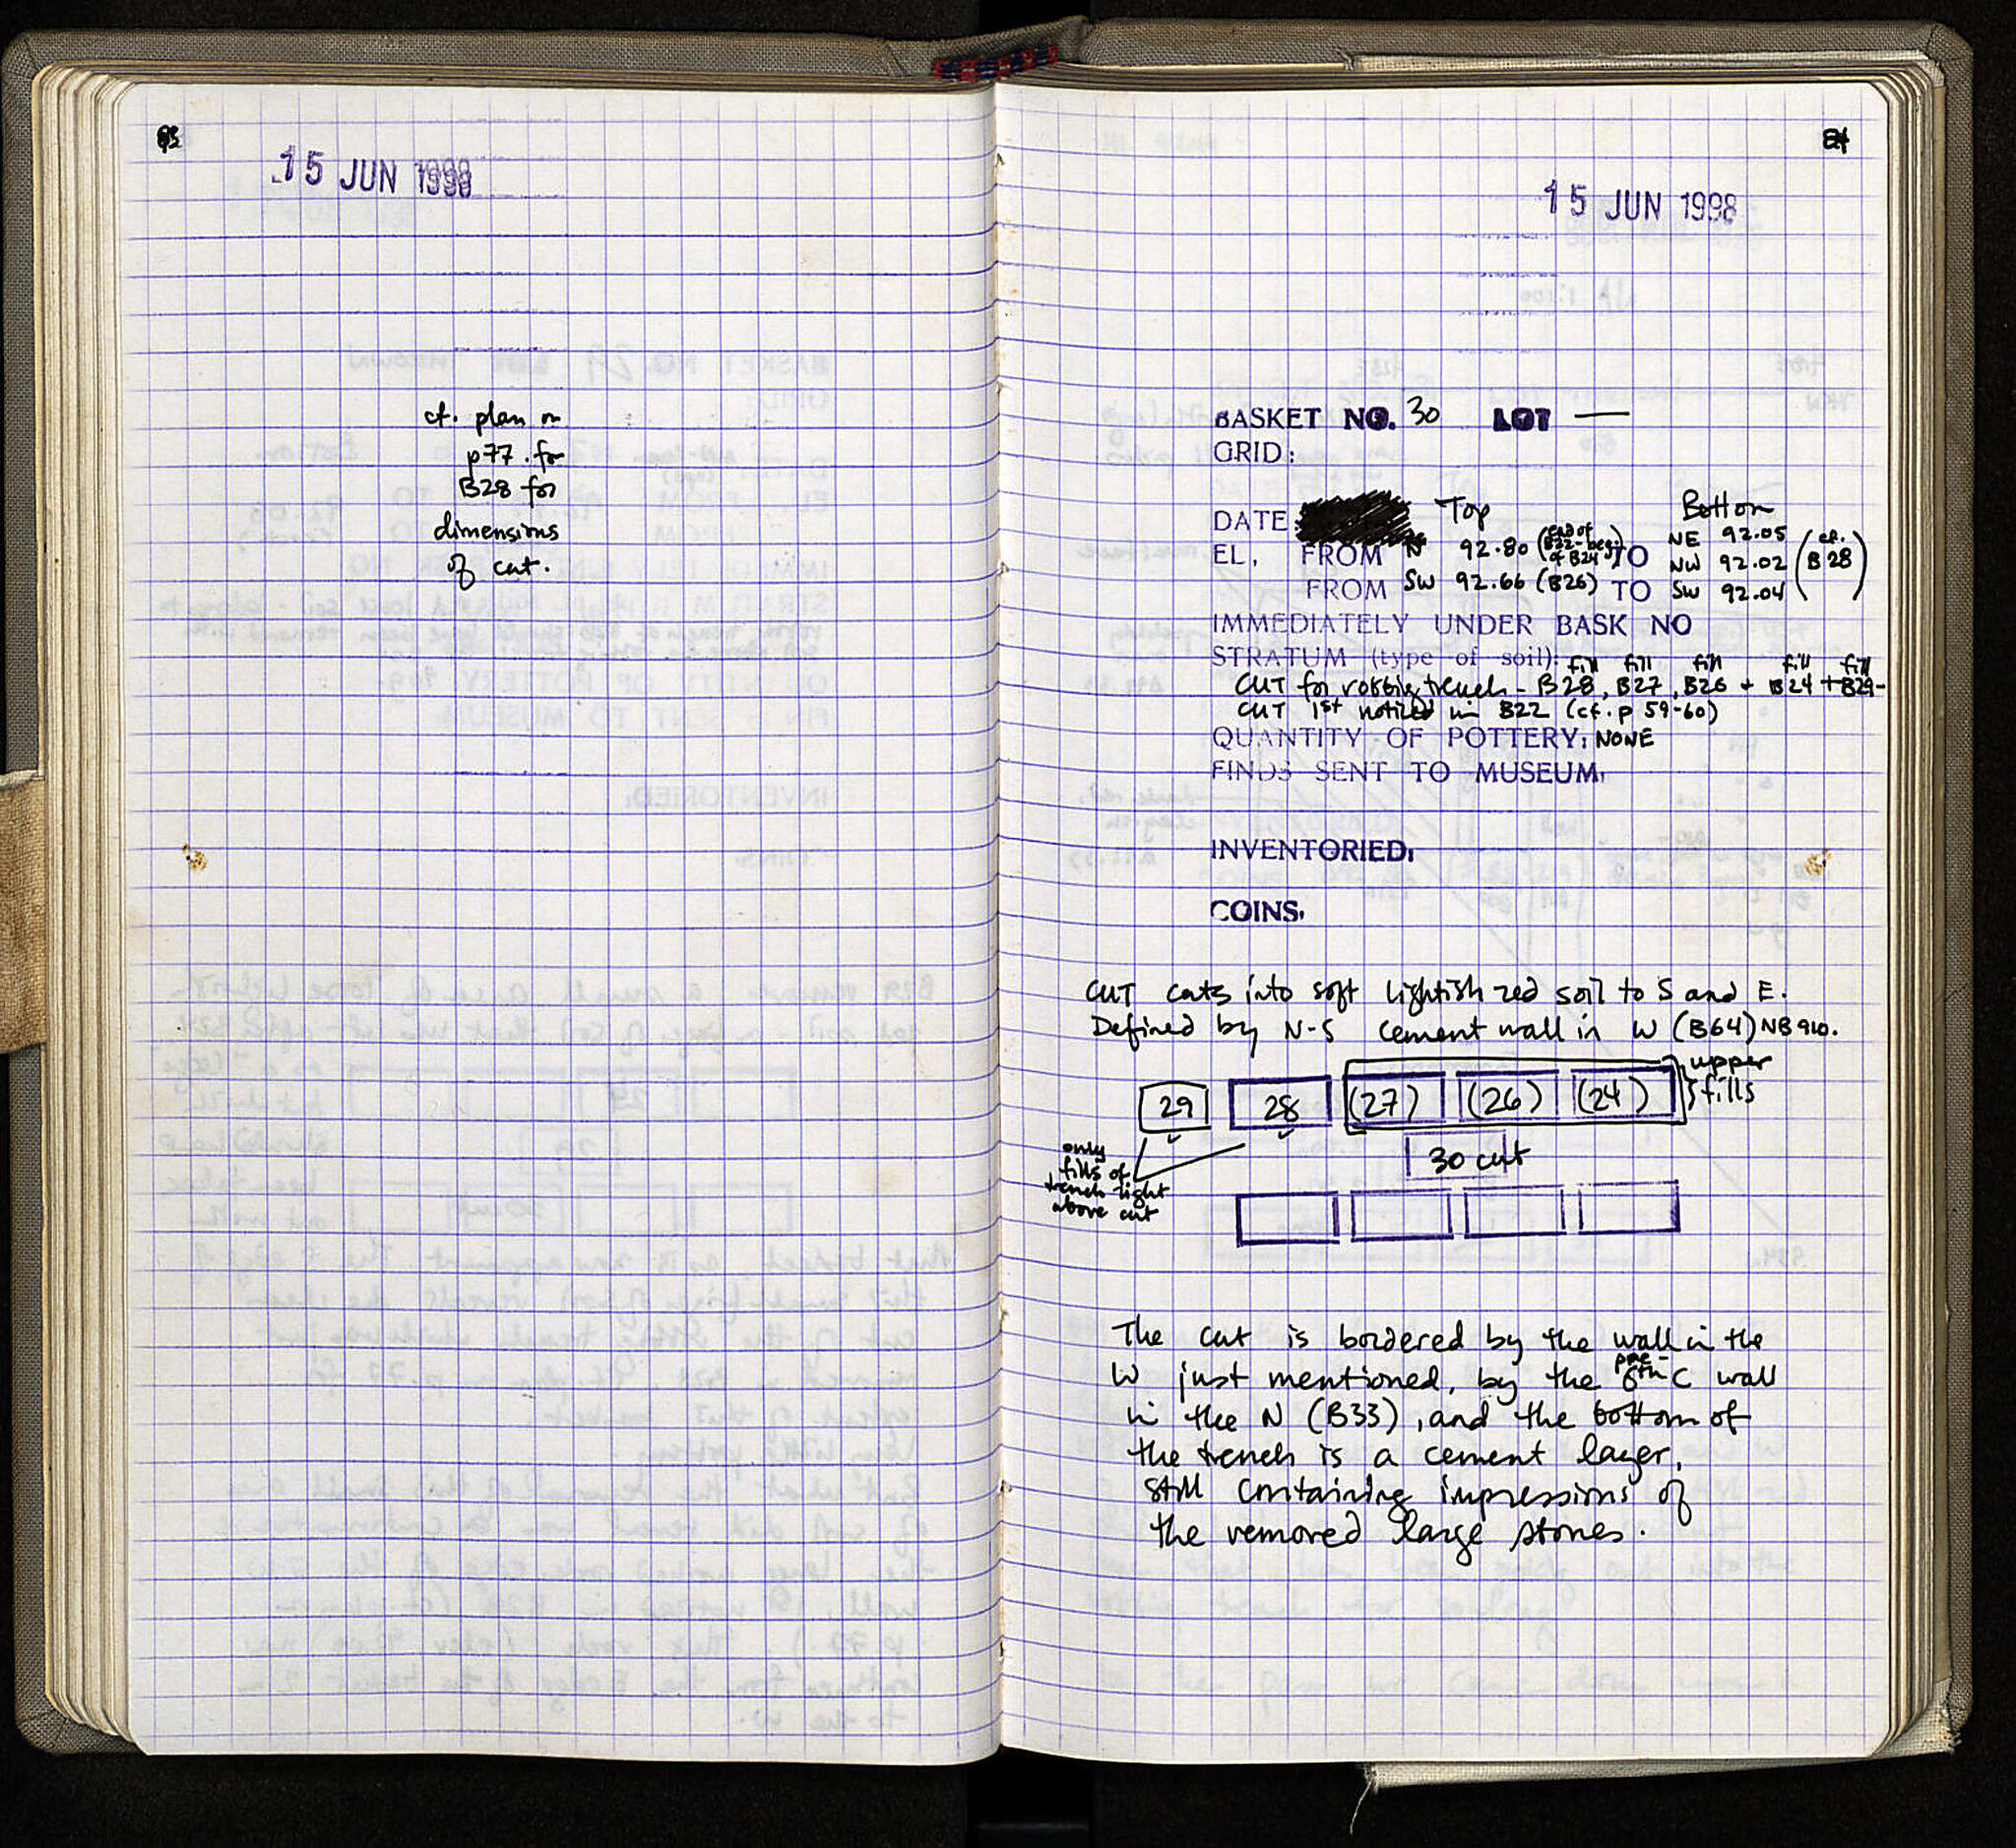 15 JUN 1998
cf. plan on
p77. for
B28 for
dimensions
of cut.
84
15 JUN 1998
BASKET NO. 30 LOT —
GRID:
DATE Top Bottom
EL, FROM N 92.80 (end of B22-beg. of B24) TO NE 92.05
NW 92.02 (cf. B28)
FROM SW 92.66 (B26) TO SW 92.04
IMMEDIATELY UNDER BASK NO
STRATUM (type of soil): fill fill fill fill fill
CUT for robbing trench - B28, B27, B26 + B24 + B29-
CUT 1st noticed in B22 (cf. p 59-60)
QUANTITY OF POTTERY: NONE
FINDS SENT TO MUSEUM,
INVENTORIED,
COINS,
CUT cuts into soft lightish red soil to S and E.
Defined by N-S cement wall in W (B64) NB910.
29 28 (27) (26) (24) } upper fills
only fills of trench right above cut
30 cut
The cut is bordered by the wall in the
W just mentioned, by the pre-6th C wall
in the N (B33), and the bottom of
the trench is a cement layer,
still containing impressions of
the removed large stones.